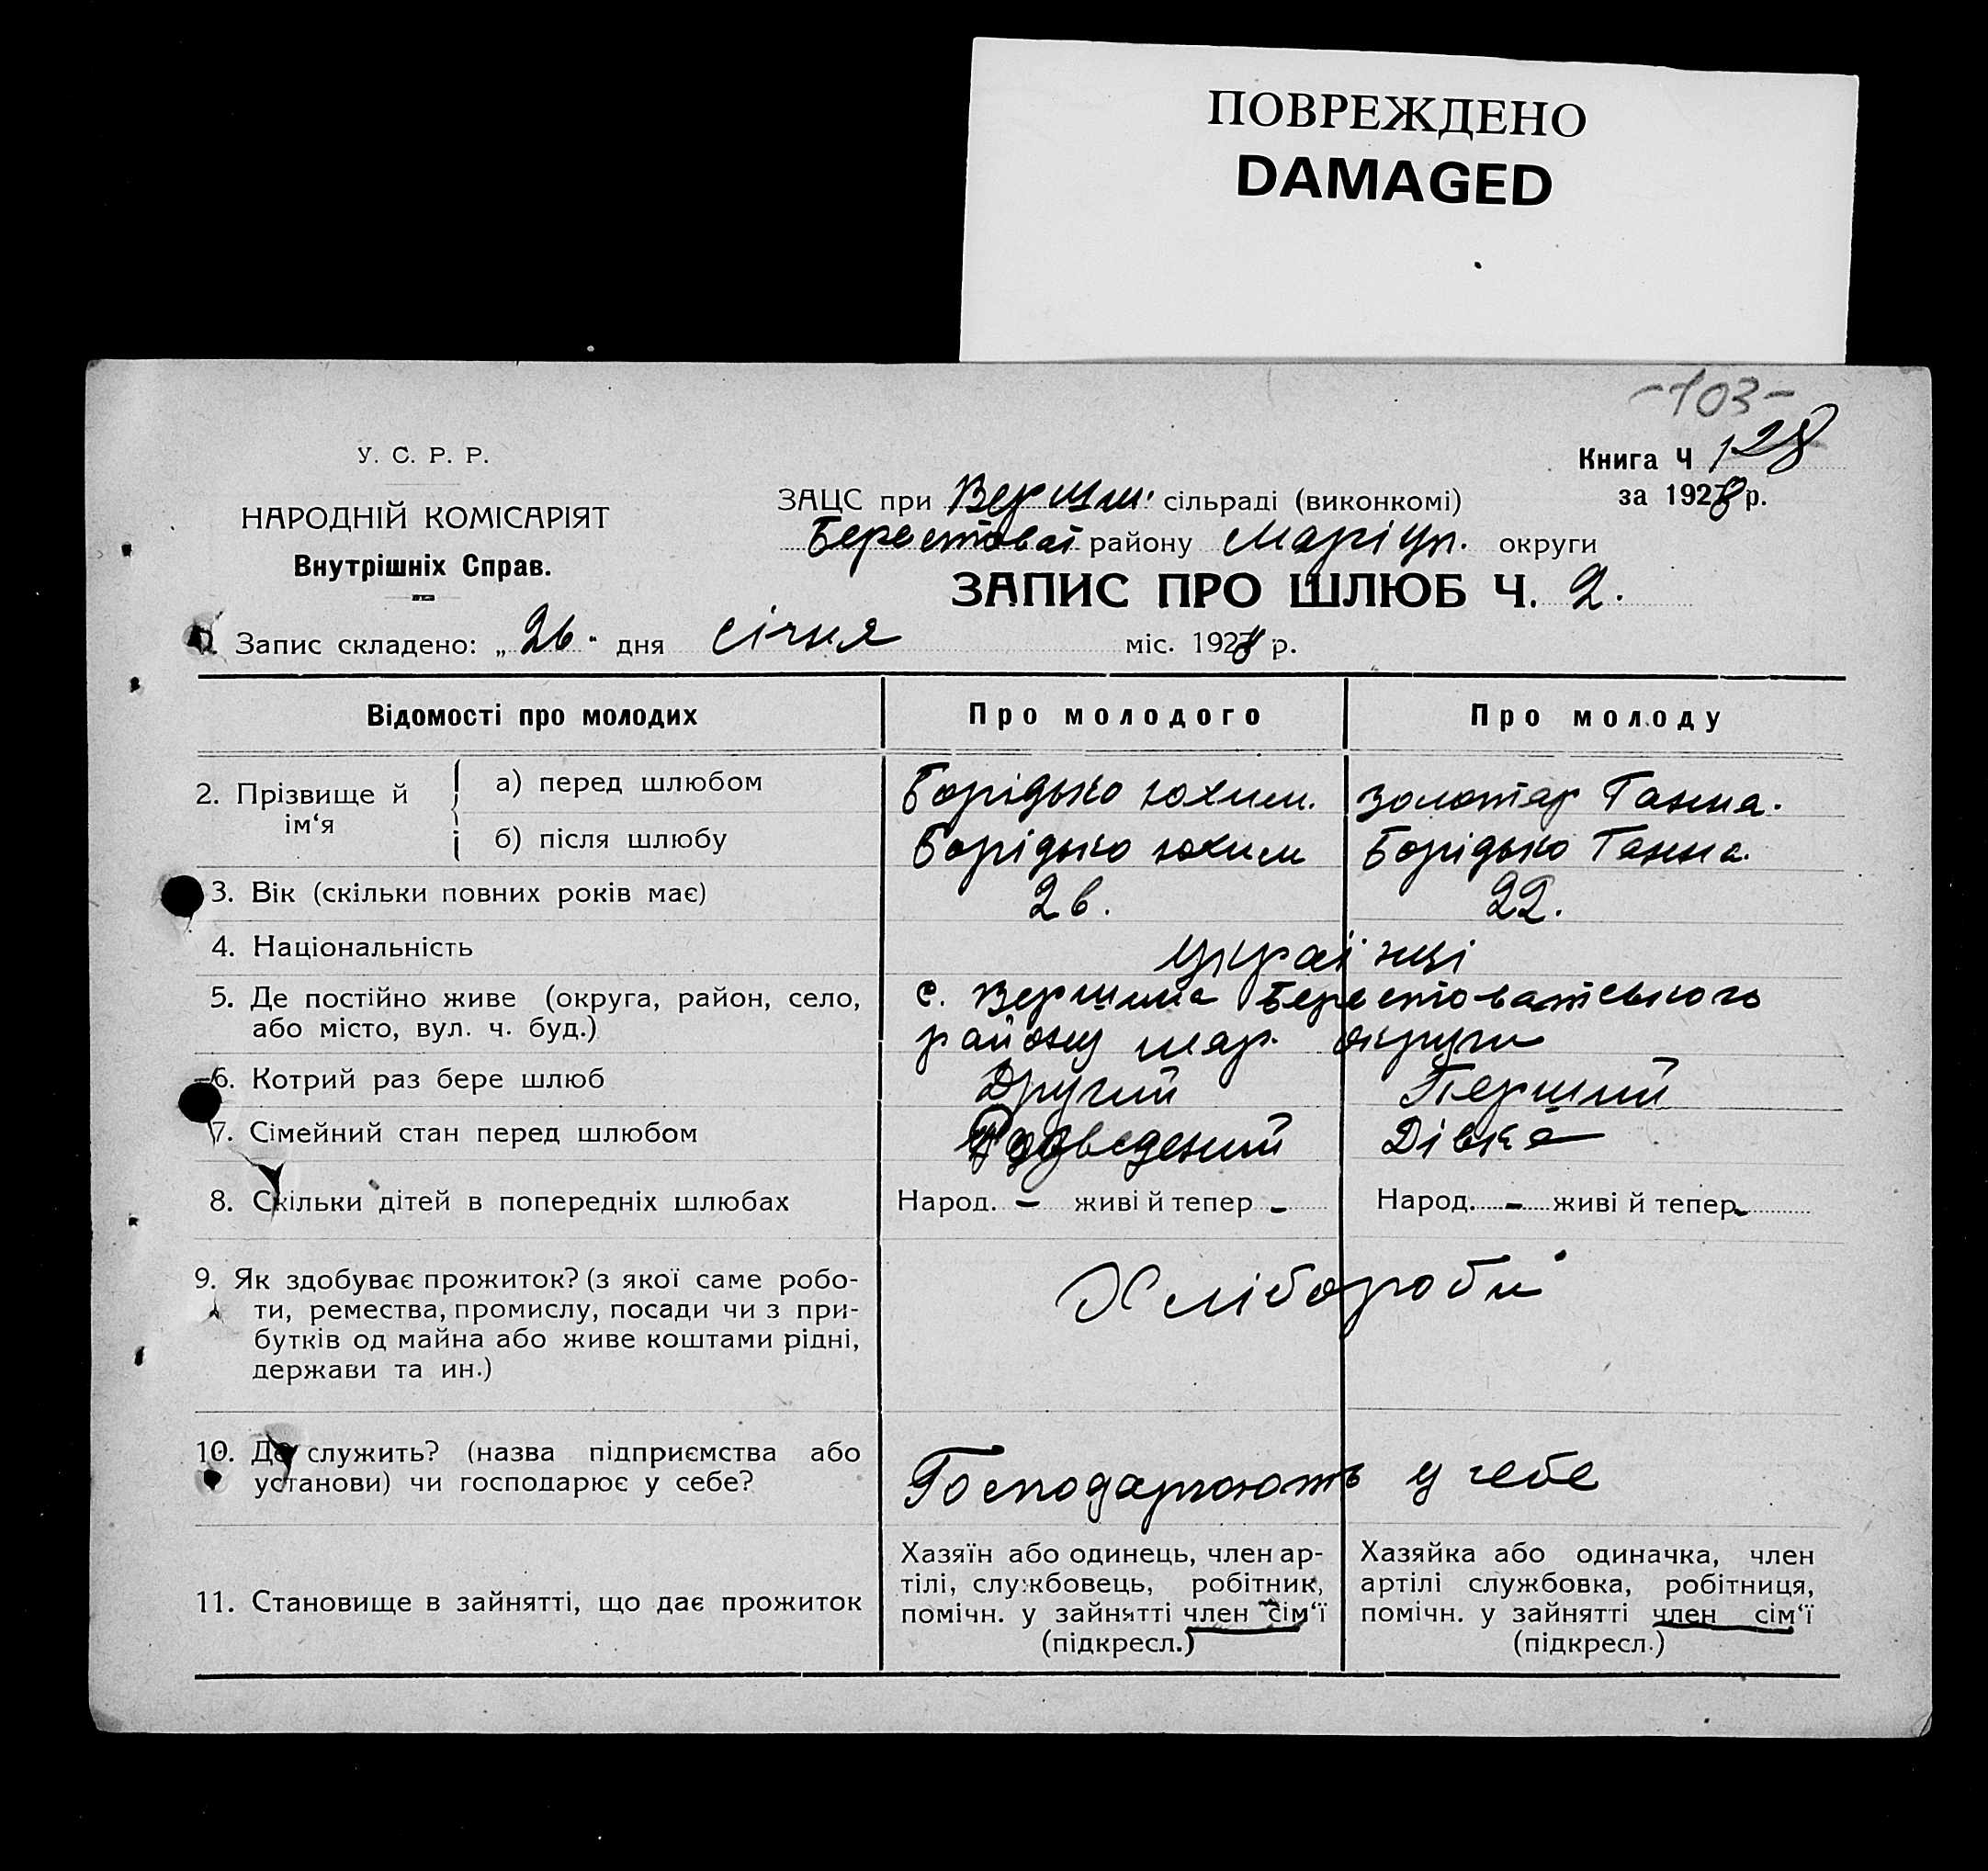 ПОВРЕЖДЕНО
DAMAGED
-103-
У. С. Р. Р.
НАРОДНІЙ КОМІСАРІЯТ
Внутрішніх Справ.
Книга Ч 128
за 1928 р.
ЗАЦС при Верши. сільраді (виконкомі)
Берестоваї району Маріуп. округи
ЗАПИС ПРО ШЛЮБ Ч. 2.
1. Запис складено: „26" дня січня міс. 1928 р.
Відомості про молодих Про молодого Про молоду
2. Прізвище й ім‘я
а) перед шлюбом Борідько Юхим. Золотар Ганна.
б) після шлюбу Борідько Юхим Борідько Ганна.
3. Вік (скільки повних років має) 26. 22.
4. Національність українці
5. Де постійно живе (округа, район, село, с. Вершина Берестоватського
або місто, вул. ч. буд.) району мар. округи
6. Котрий раз бере шлюб Другий Перший
7. Сімейний стан перед шлюбом Розведений Дівка
8. Скільки дітей в попередніх шлюбах Народ. – живі й тепер – Народ. – живі й тепер –
9. Як здобуває прожиток? (з якої саме робо- Хлібороби
ти, ремества, промислу, посади чи з при-
бутків од майна або живе коштами рідні,
держави та ин.)
10. Де служить? (назва підприємства або
установи) чи господарює у себе? Господарюють у себе
11. Становище в зайнятті, що дає прожиток
Хазяїн або одинець, член ар-
тілі, службовець, робітник,
помічн. у зайнятті член сім‘ї
(підкресл.)
Хазяйка або одиначка, член
артілі службовка, робітниця,
помічн. у зайнятті член сім‘ї
(підкресл.)